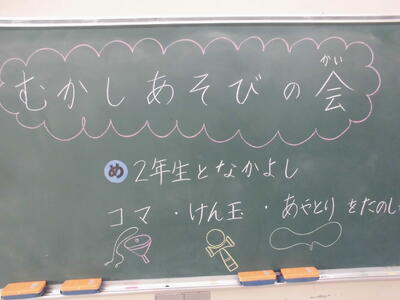 むかしあそびの会
かい
め 2年生となかよし
コマ・けん玉・あやとりをたのし